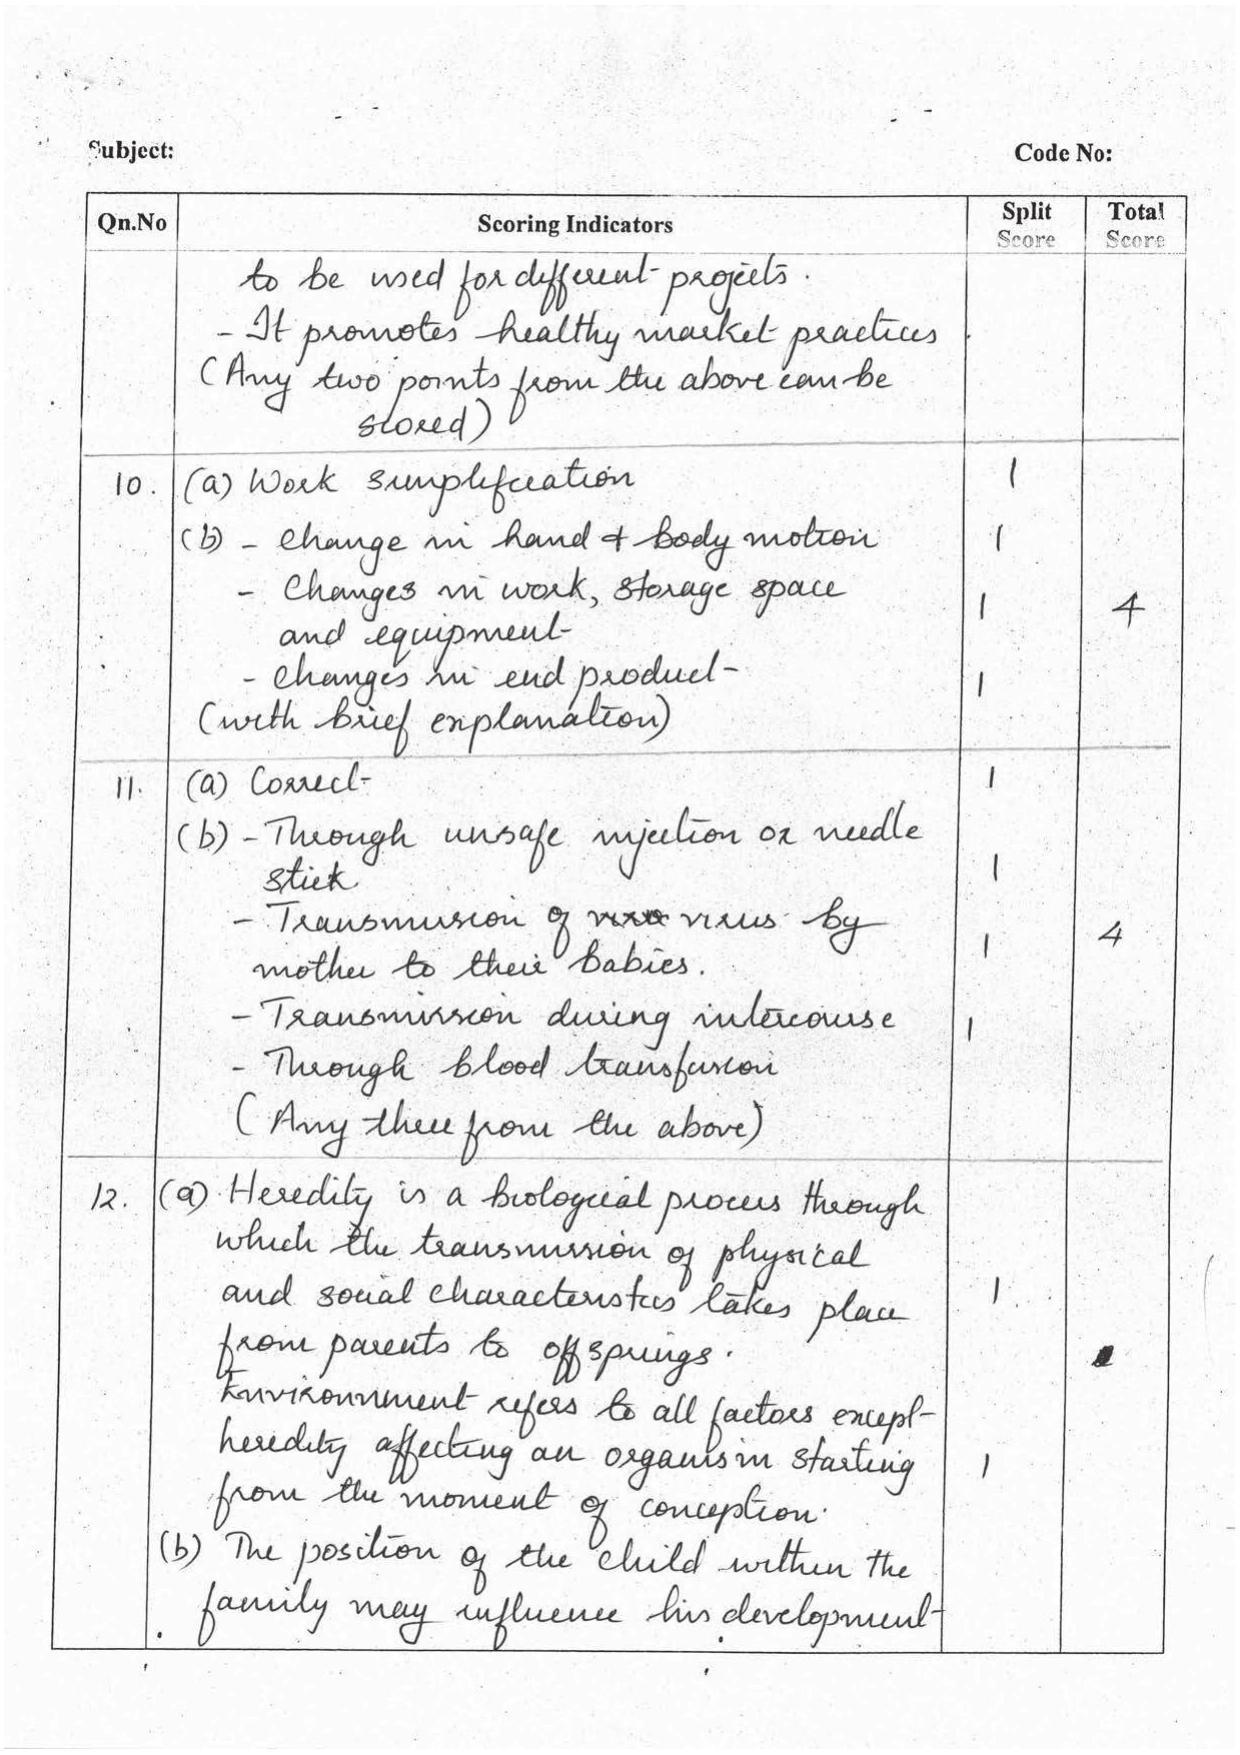 Subject:
Code No:
Qn.No Scoring Indicators Split Score Total Score
to be used for different projects.
- It promotes healthy market practices.
(Any two points from the above can be
scored)
10. (a) Work simplification 1
(b) - Change in hand & body motion 1
- Changes in work, storage space
and equipment 1 4
- Changes in end product 1
(with brief explanation)
11. (a) Correct 1
(b) - Through unsafe injection or needle
stick 1
- Transmission of virus by
mother to their babies. 1 4
- Transmission during intercourse 1
- Through blood transfusion
(Any three from the above)
12. (a) Heredity is a biological process through
which the transmission of physical
and social characteristics takes place 1
from parents to offsprings.
Environment refers to all factors except
heredity affecting an organism starting 1
from the moment of conception.
(b) The position of the child within the
family may influence his development